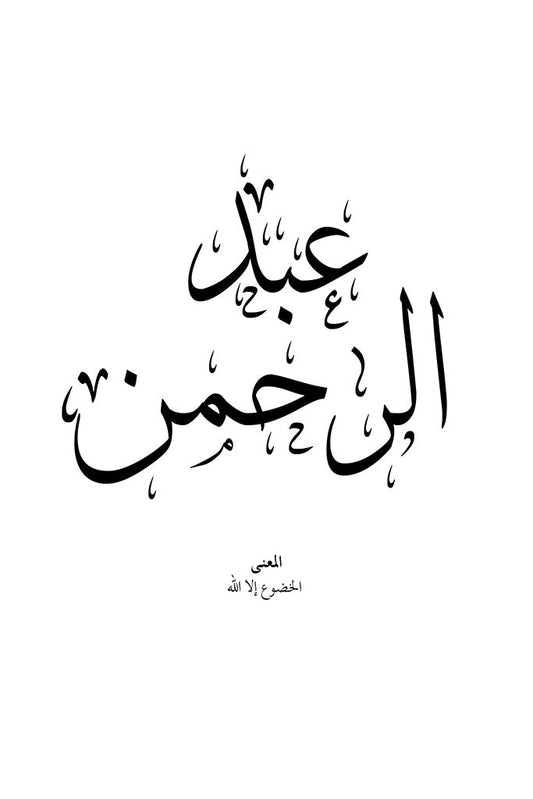 عبد
الرحمن
المعنى
الخضوع إلا الله